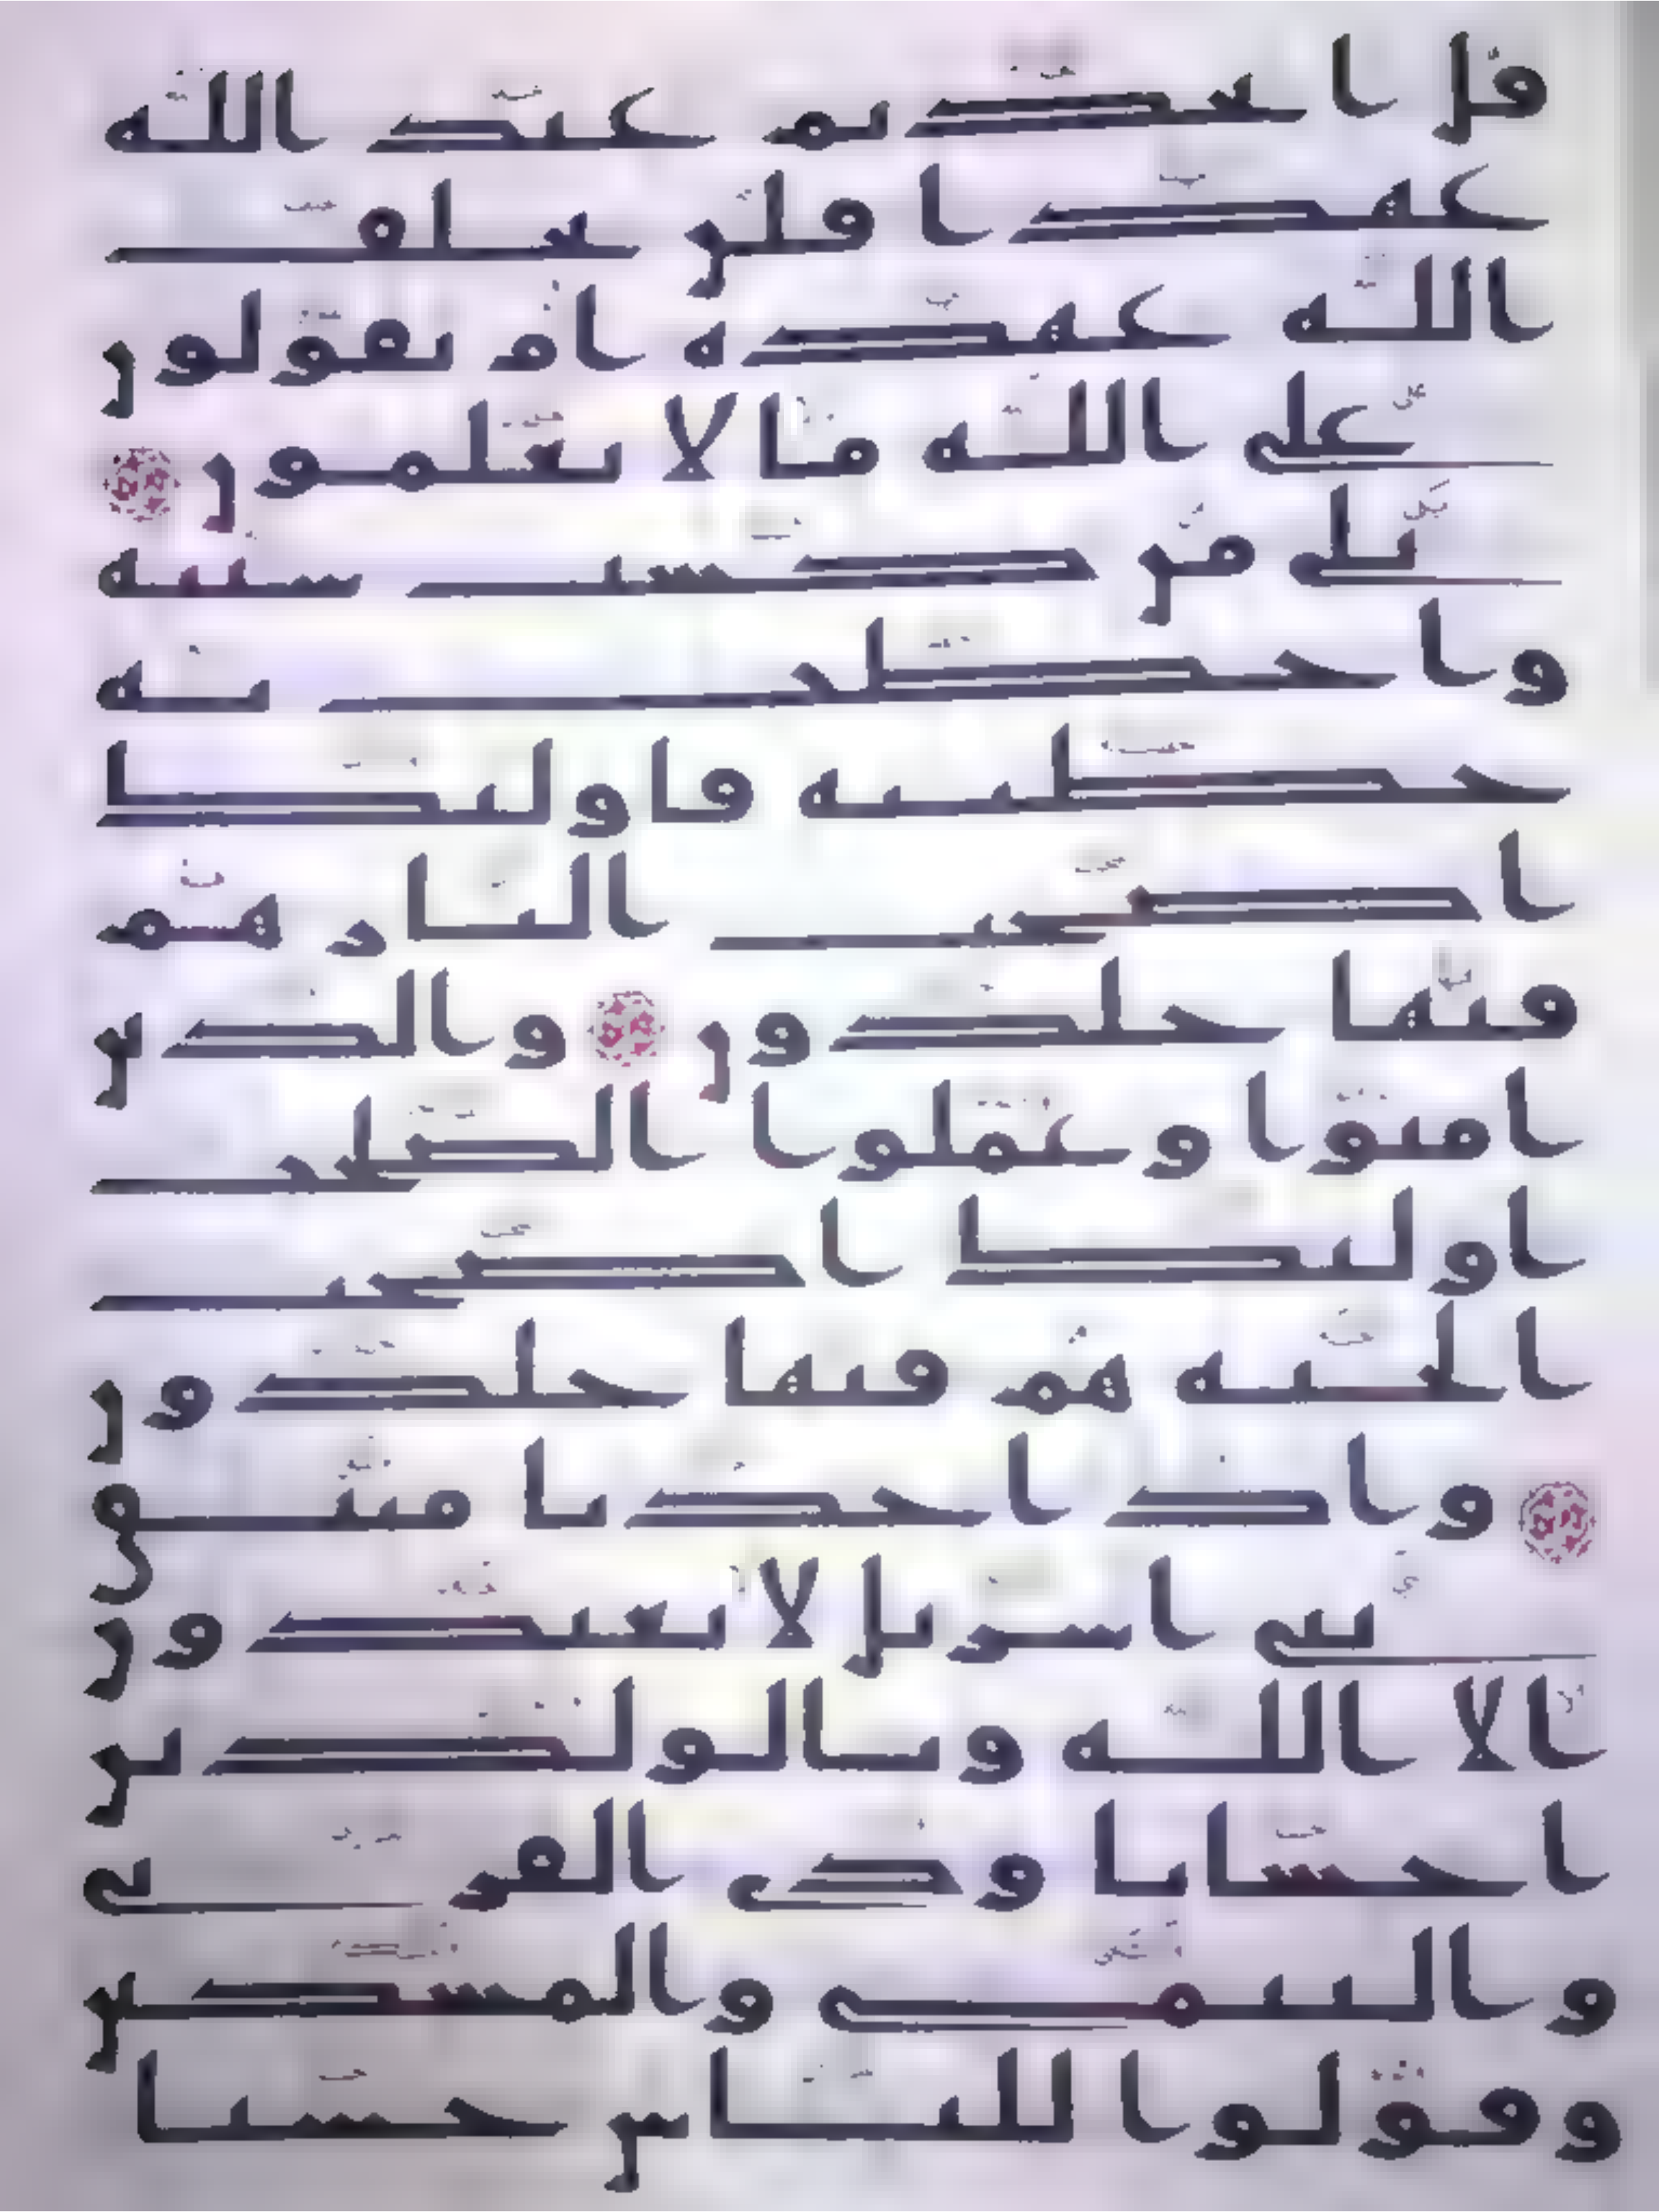 قل اتخذتم عند الله
عهدا فلن يخلف
الله عهده ام تقولون
على الله ما لا تعلمون
بلى من كسب سيئة
واحطت به
خطيته فاولئك
اصحب النار هم
فيها خلدون والذين
امنوا وعملوا الصلحت
اولئك اصحب
الجنة هم فيها خلدون
واذ اخذنا ميثق
بني اسريل لا تعبدون
الا الله وبالولدين
احسانا وذي القربى
واليتمى والمسكين
وقولوا للناس حسنا